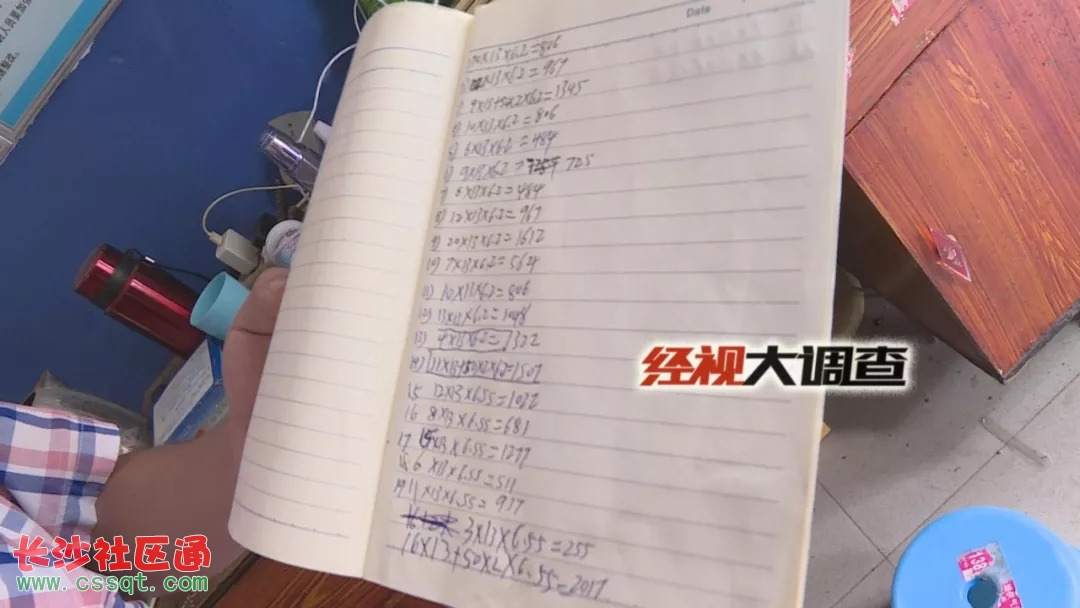 Date
10×13×6.2=806
12×13×6.2=967
9×13+50×2×6.2=1345
10×13×6.2=806
6×13×6.2=484
9×13×6.2= 725
6×13×6.2=484
8) 12×13×6.2=967
9) 20×13×6.2=1612
10) 7×13×6.2=564
11) 10×13×6.2=806
12) 13×13×6.2=1048
13) 4×13×6.2=1322
14) 11×13+50×2×6.2=1507
15 12×13×6.55=1022
16 8×13×6.55=681
17 15×13×6.55=1277
18 6×13×6.55=511
19 11×13×6.55=937
3×13×6.55=255
16×13+50×2×6.55=2017
经视大调查
长沙社区通
www.cssqt.com